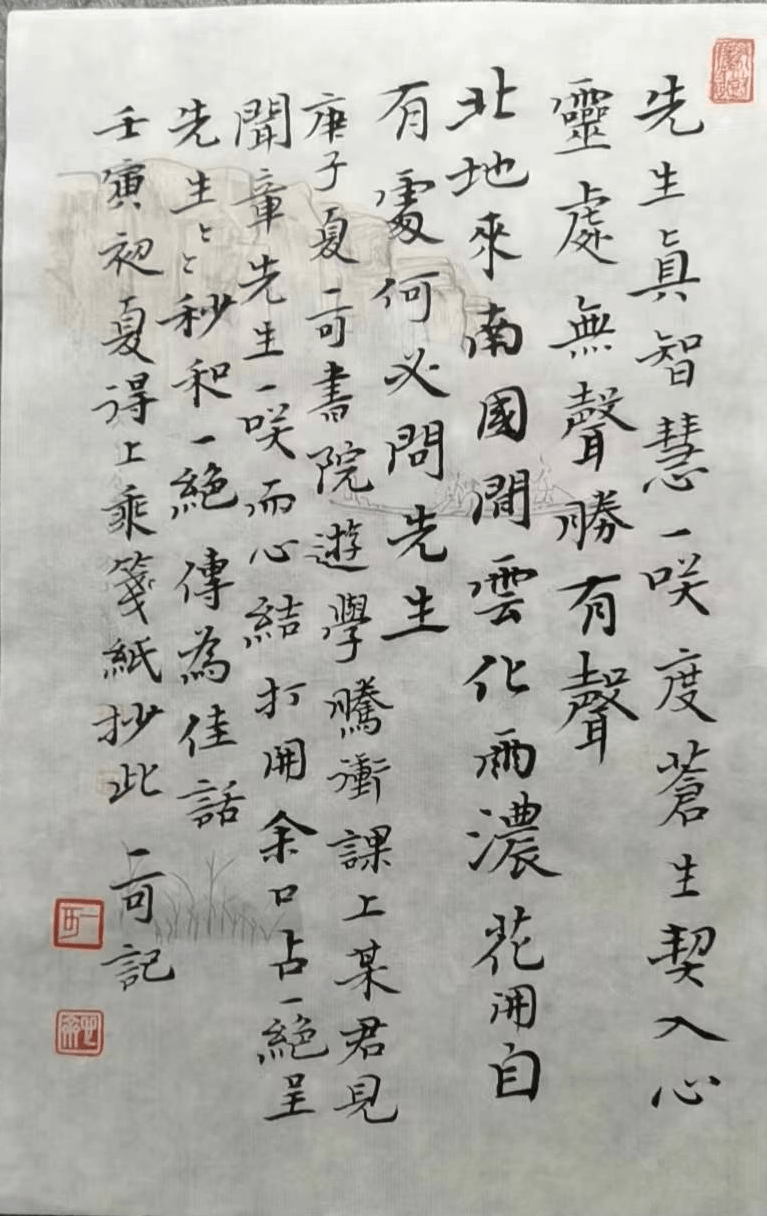 先生真智慧一咲度蒼生契入心
靈處無聲勝有聲
北地來南國閒雲化雨濃花開自
有處何必問先生
庚子夏一可書院遊學騰衝課上某君見
聞章先生一咲而心結打開余口占一絕呈
先生先生秒和一絕傳為佳話
壬寅初夏得上乘箋紙抄此一可記